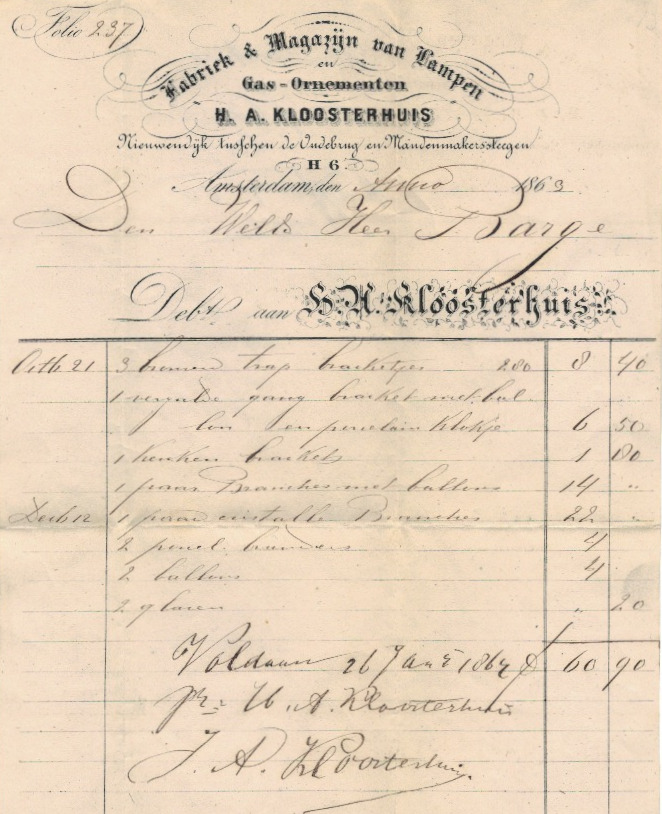 Folio 237
Fabriek & Magazijn van Lampen
en
Gas-Ornementen
H. A. KLOOSTERHUIS
Nieuwendijk tusschen de Oudebrug en Mandenmakerssteegen
H 6.
Amsterdam, den Anno 1863
Den Heer Barge
Debt. aan H. A. Kloosterhuis.
Octb 21 3 trap braketjes 280 8 40
1 vergulde gang braket met bal
lon en porcelain klokje 6 50
1 keuken brakets 1 80
1 paar Branches met ballons 14 "
Decb 12 1 paar cristalle Branches 22 "
2 branders 4
2 ballons 4
2 glazen " 20
Voldaan 26 Jan 1864 60 90
pr H. A. Kloosterhuis
J. A. Kloosterhuis.